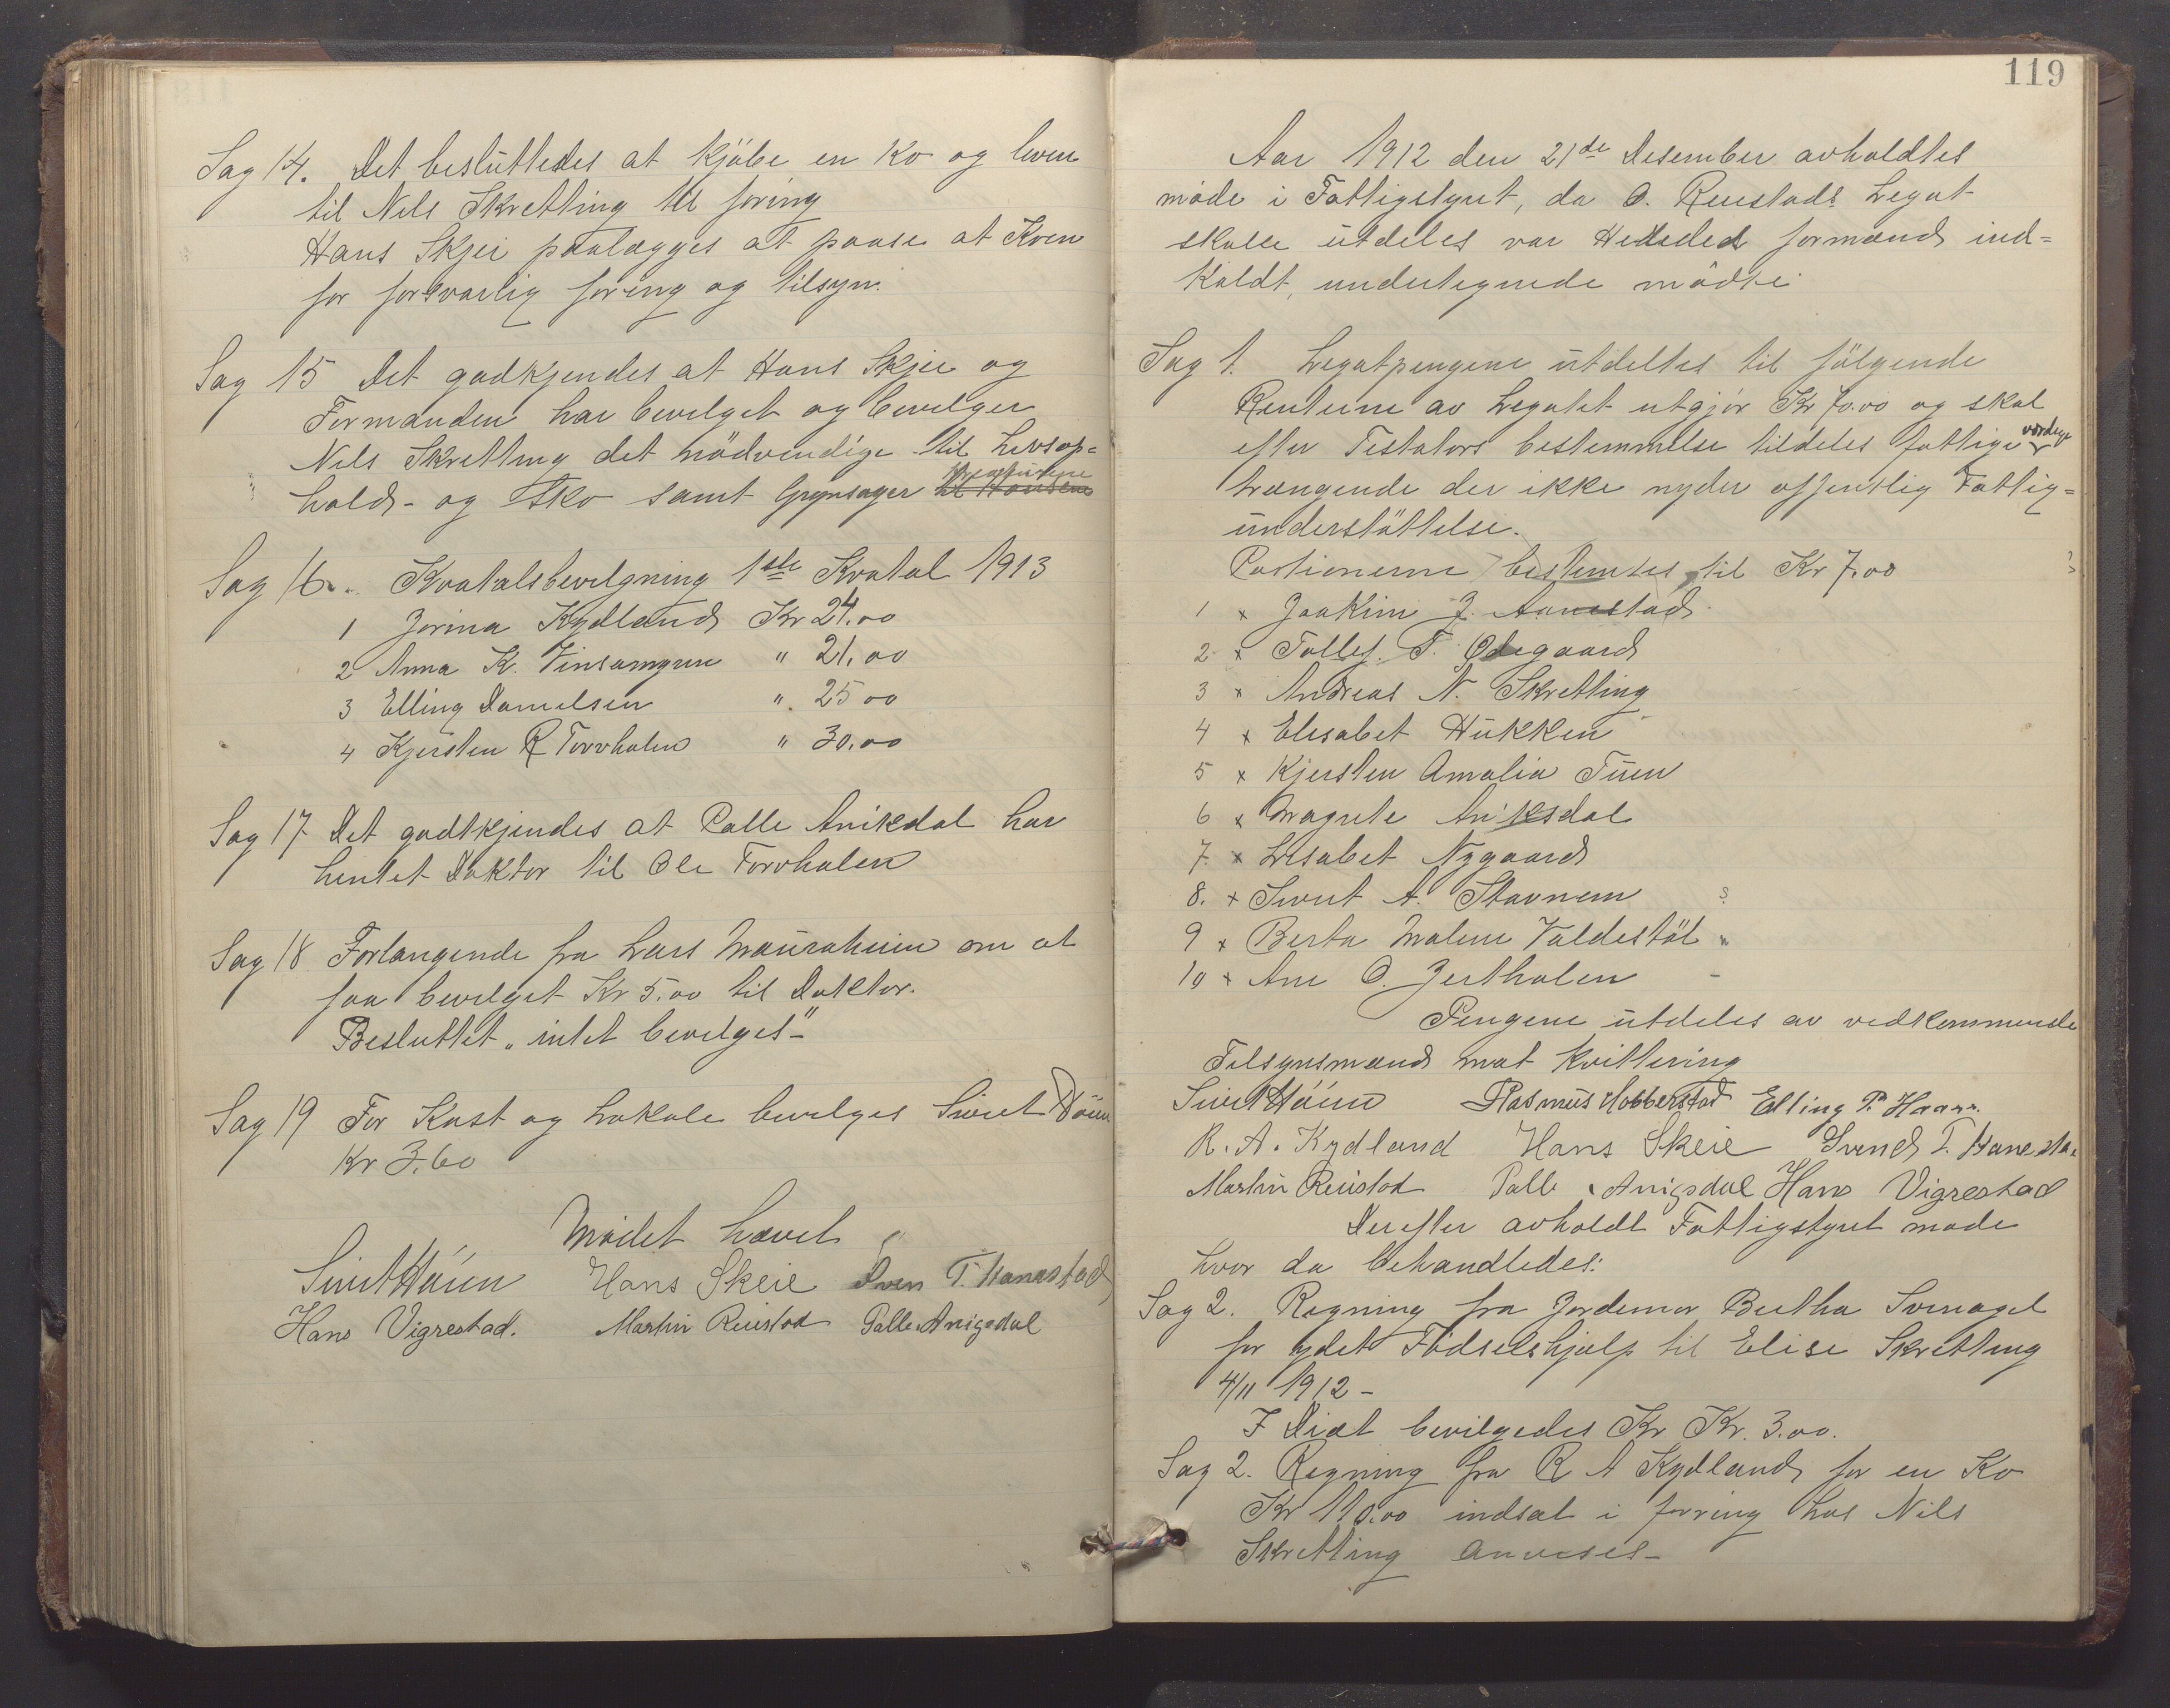 Sag 14. Det besluttedes at kjöbe en Ko og leven
til Nils Skretting til foring
Hans Skjei paalægges at paase at Koen
for forsvarlig foring og tilsyn.
Sag 15 Det godkjendes at Hans Skjei og
Formanden har bevilget og bevilger
Nils Skretting det nödvendige til Livsop=
hold - og Sko samt Grynsager til Kreaturene
Sag 16. Kvatalsbevilgning 1ste Kvatal 1913
1 Jorina Kydland Kr 24.00
2 Anna K. " 21.00
3 Elling Danielsen " 25 00
4 Kjersten R Torvhalen " 30.00
Sag 17 Det godtkjendes at Palle Anikdal har
hentet Doktor til Ole Torvhalen
Sag 18 Forlangende fra Lars Mauraheim om at
faa bevilget Kr 5.00 til Doktor.
Besluttet "intet bevilges"-
Sag 19 For Kost og Lokale bevilges Sivert Höien
Kr 3.60
Mödet hævet
Sivert Höien Hans Skeie Sven T. Hanestad
Hans Vigrestad. Martin Reiestad Palle Anigsdal
119
Aar 1912 den 21de Desember avholdtes
möde i Fattigstyret, da O. Reiestads Legat
skulle utdeles var Herredets formænd ind=
kaldt, undertegnede mödte
Sag 1. Legatpengene utdeltes til fölgende
Renterne av Legatet utgjör Kr 70.00 og skal
efter Testators bestemmelse tildeles fattige værdige
trængende der ikke nyder offentlig Fattig=
understöttelse.
Portionerne bestemtes til Kr 7.00
1 x Joakim J. Aanestad
2 x Tollef. T. Ödegaard
3 x Andreas N. Skretting
4 x Elisabet Hukken
5 x Kjersten Amalia Tuen
6 x Magrete Aniksdal
7. x Lisabet Nygaard
8. x Sivert A. Stavnem
9 x Berta Malene Valdestöl "
10 x Ane O. Jertholen -
Pengene utdeles av vedkommende
Tilsynsmænd mot kvittering
Sivert Höien Rasmus Hobberstad Elling P. Haar
R. A. Kydland Hans Skeie Svend T. Hanesta
Martin Reiestad Palle Anigsdal Hans Vigrestad
Derefter avholdt Fattigstyret möde
hvor da behandledes:
Sag 2. Regning fra Jordemor Bertha Svenagel
for ydet Födselshjælp til Elise Skretting
4/11 1912 -
I Diæt bevilgedes Kr Kr. 3.00.
Sag 2. Regning fra R A Kydland for en Ko
Kr 110.00 indsat i forring hos Nils
Skretting Anvises -